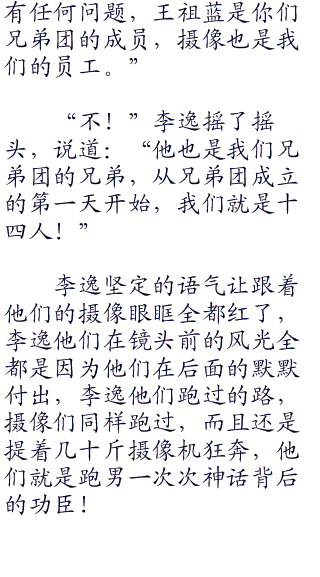 有任何问题，王祖蓝是你们
兄弟团的成员，摄像也是我
们的员工。”
“不！”李逸摇了摇
头，说道：“他也是我们兄
弟团的兄弟，从兄弟团成立
的第一天开始，我们就是十
四人！”
李逸坚定的语气让跟着
他们的摄像眼眶全都红了，
李逸他们在镜头前的风光全
都是因为他们在后面的默默
付出，李逸他们跑过的路，
摄像们同样跑过，而且还是
提着几十斤摄像机狂奔，他
们就是跑男一次次神话背后
的功臣！